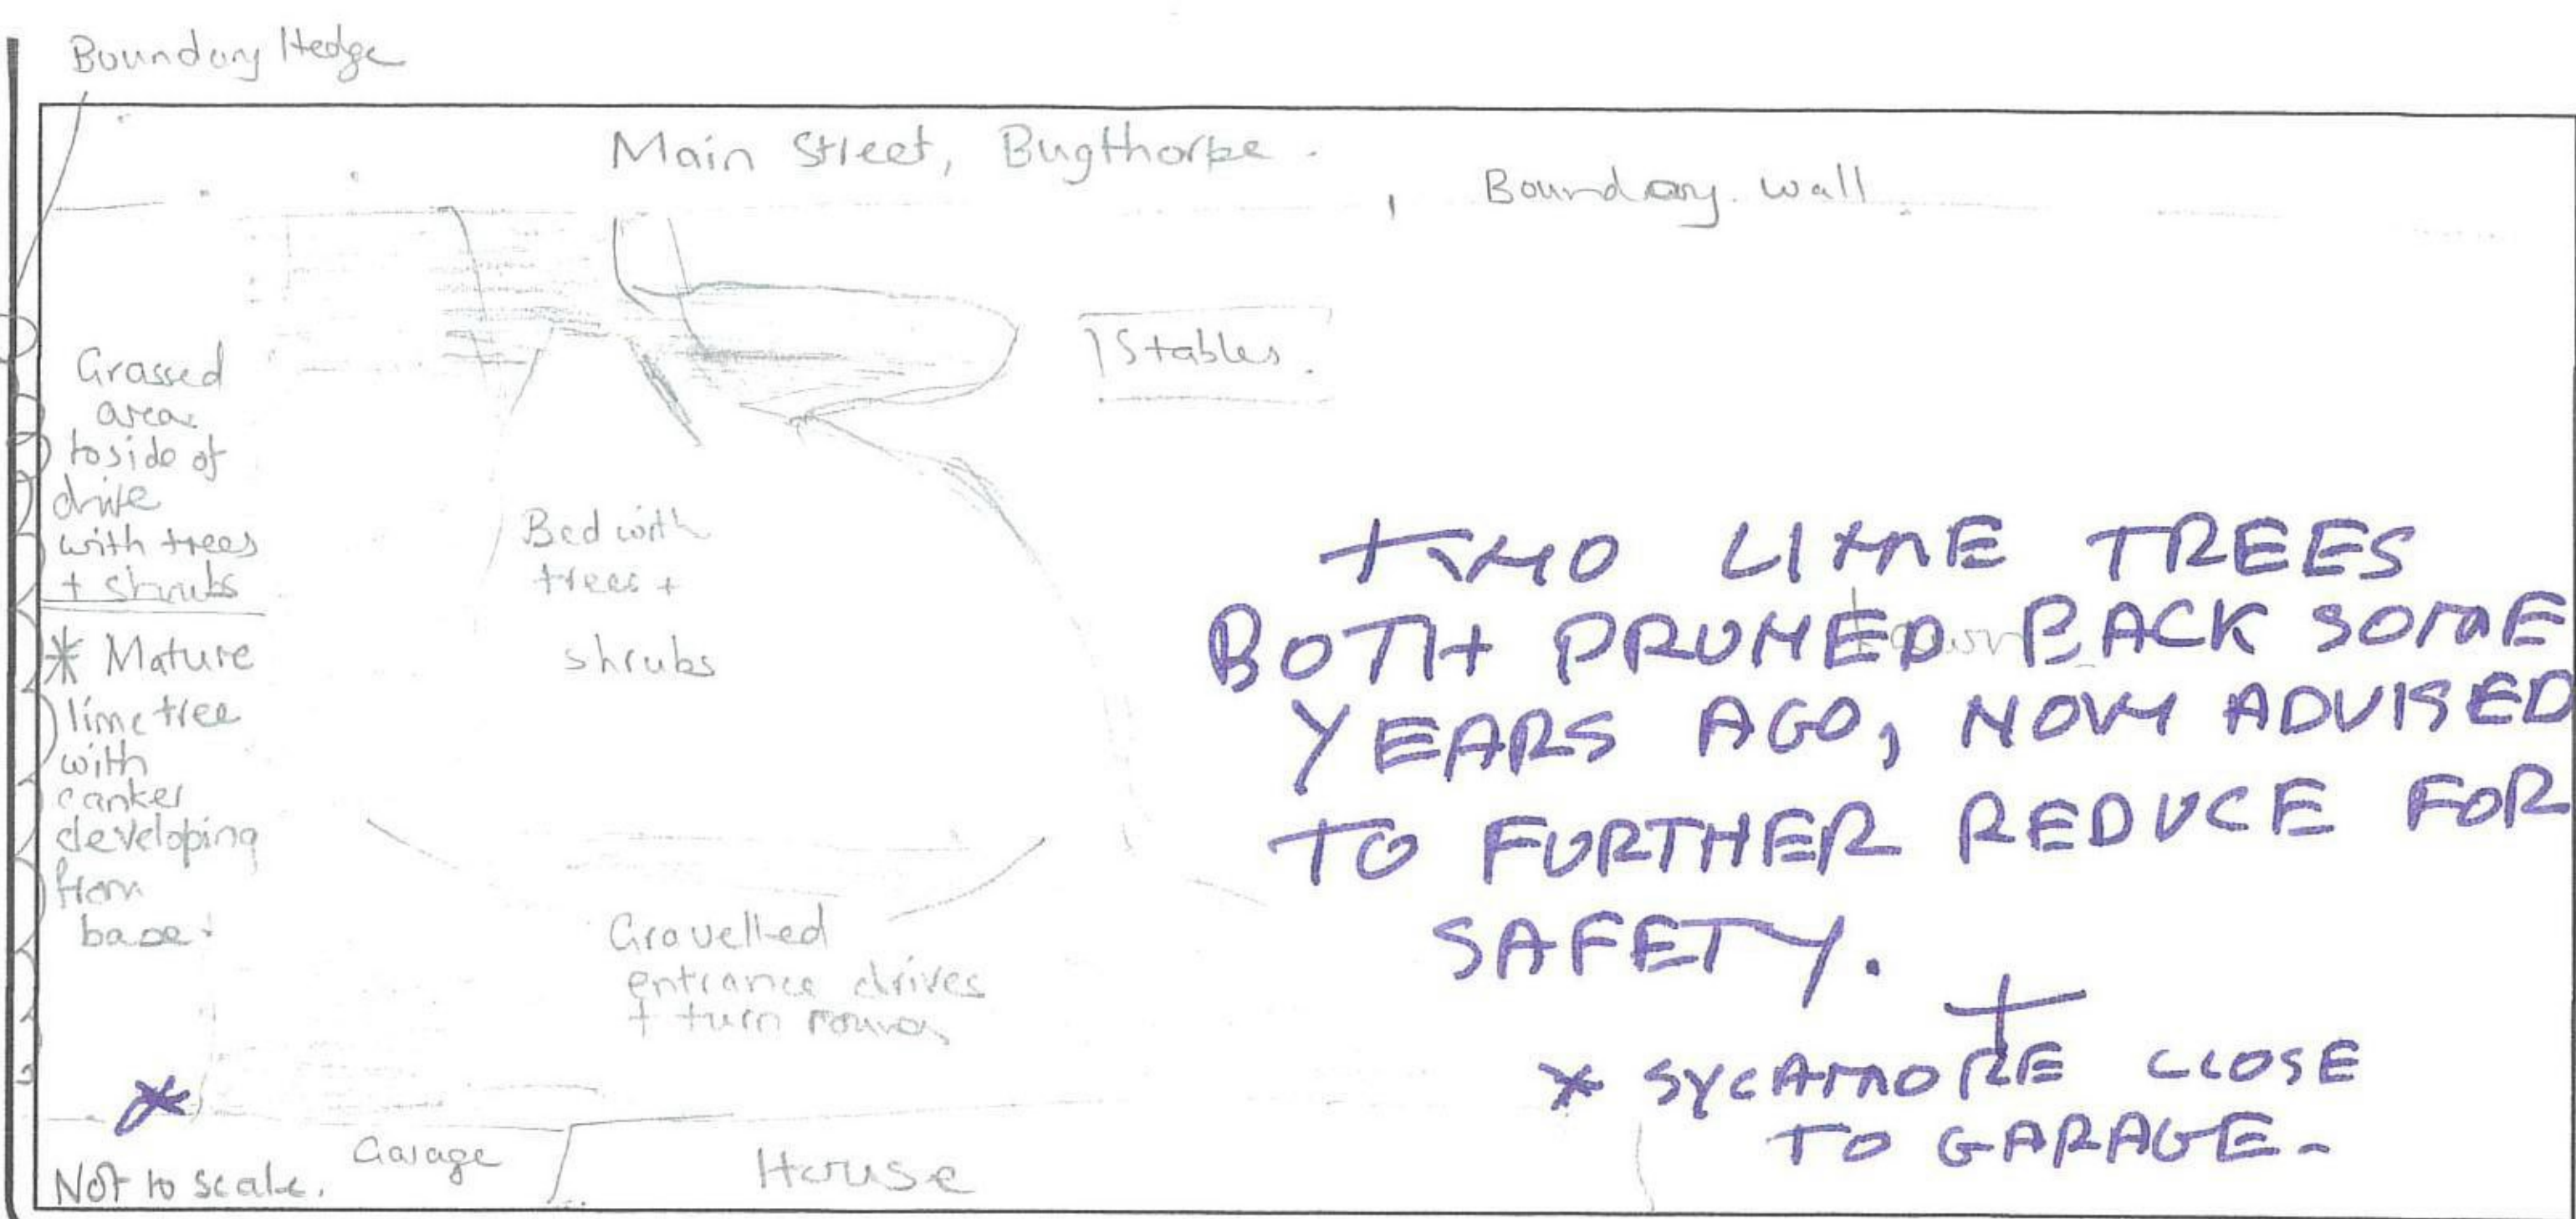 Boundary Hedge
Main Street, Bugthorpe.
Boundary wall
Stables.
Grassed
area
to side of
drive
with trees
+ shrubs
* Mature
lime tree
with
canker
developing
from
base.
Bed with
trees +
shrubs
Gravelled
entrance drives
+ turn round
Lawn
TWO LIME TREES
BOTH PRUNED BACK SOME
YEARS AGO, NOW ADVISED
TO FURTHER REDUCE FOR
SAFETY.
+
* SYCAMORE CLOSE
TO GARAGE-
*
Garage
House
Not to scale.